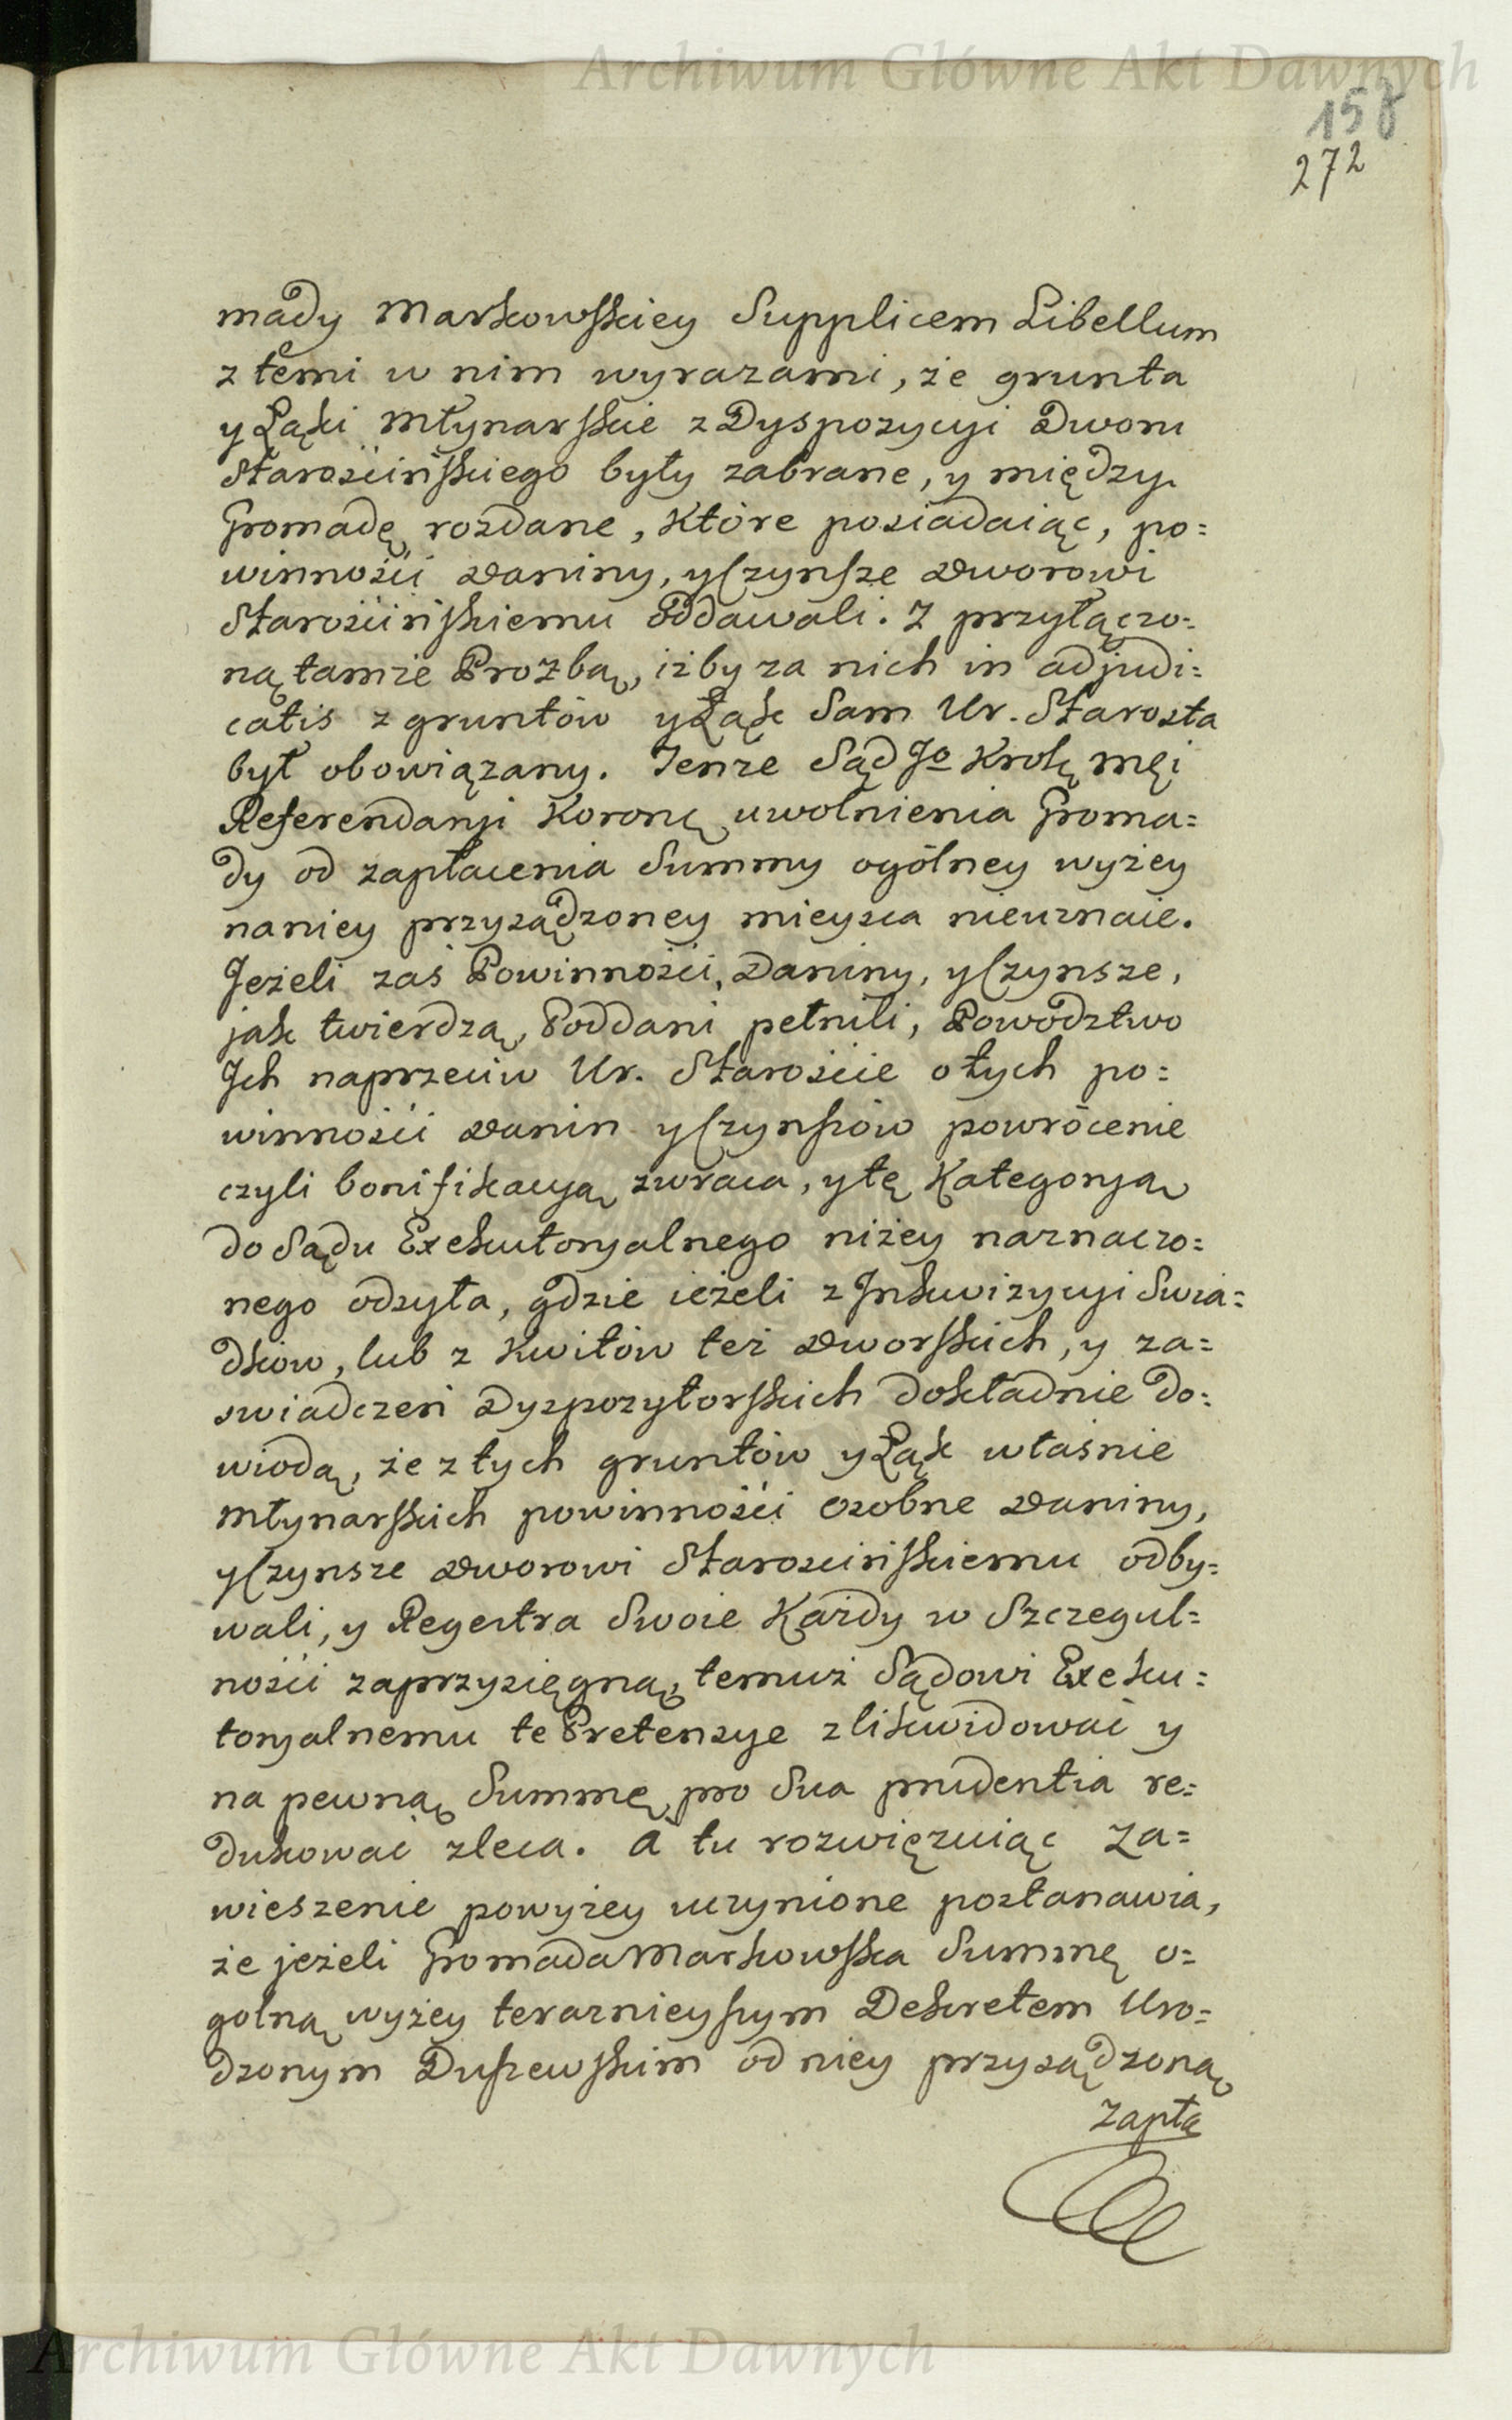 Archiwum Główne Akt Dawnych
158
272
mady Markowskiey Supplicem Libellum
z temi w nim wyrazami, że grunta
y Łąki Młynarskie z Dyspozycyi Dworu
Starościńskiego były zabrane, y między
Gromadę rozdane, które posiadaiąc, po=
winności Daniny, y Czynsze Dworowi
Starościńskiemu oddawali. Z przyłączo=
ną tamże Prozbą, iżby za nich in adjudi=
catis z gruntów y Łąk Sam Ur. Starosta
był obowiązany. Tenże Sąd Jo Krolę męi
Referendaryi Koronę uwolnienia Groma=
dy od zapłacenia Summy ogólney wyżey
naniey przysądzoney mieysca nieuznaie.
Jeżeli zaś Powinności, Daniny, y Czynsze,
jak twierdzą, Poddani pełnili, Powództwo
Jch naprzeciw Ur. Starościie o tych po=
winności Danin y Czynszów powrócenie
czyli bonifikacyą zwraca, y tę Kategoryą
do Sądu Exekutoryalnego niżey naznaczo=
nego odsyła, gdzie ieżeli z Jnkwizycyi Swia=
dkow, lub z Kwitów też Dworskich, y za=
swiadczeń Dyspozytorskich dokładnie do=
wiodą, że z tych gruntów y Łąk właśnie
Młynarskich powinności osobne Daniny,
y Czynsze Dworowi Starościńskiemu odby=
wali, y Regestra Swoie Każdy w Szczegul=
ności zaprzysięgną, temuż Sądowi Exeku=
toryalnemu te Pretensye zlikwidować y
na pewną Summę pro Sua prudentia re=
dukować zleca. A tu rozwięzuiąc Za=
wieszenie powyżey uczynione postanawia,
że jeżeli Gromada Markowska Summę o=
golną wyżey teraznieyszym Dekretem Uro=
dzonym Duszewskim od niey przysądzoną
zapła
Archiwum Główne Akt Dawnych